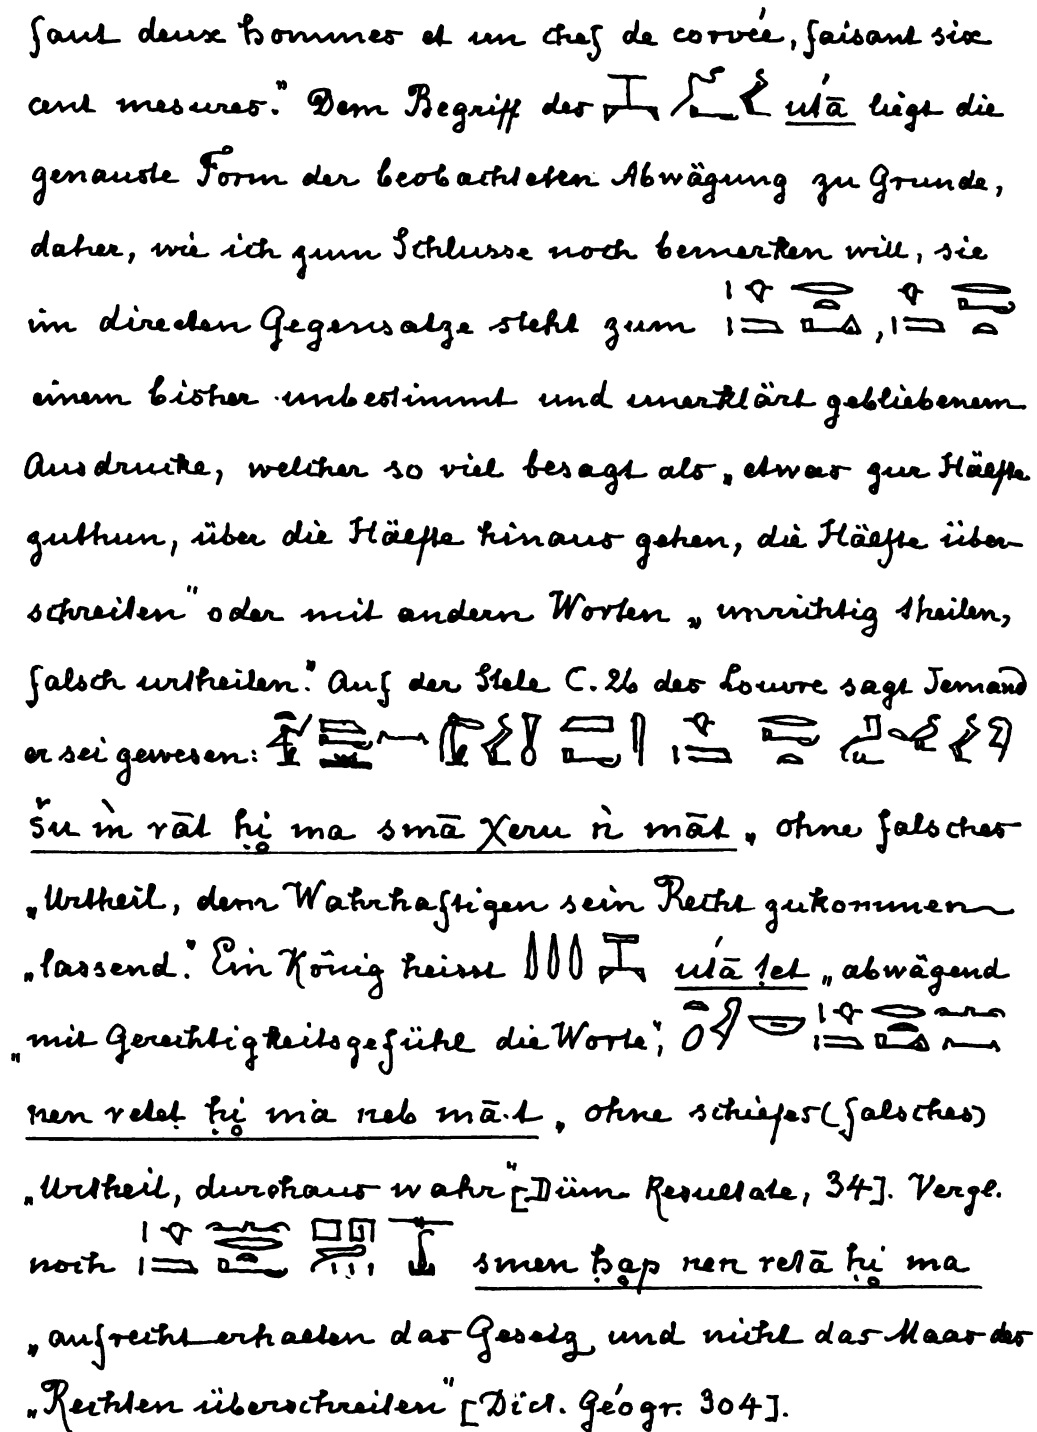 faut deux hommes et un chef de corvée, faisant six
cent mesures." Dem Begriff des utā liegt die
genauste Form der beobachteten Abwägung zu Grunde,
daher, wie ich zum Schlusse noch bemerken will, sie
im directen Gegensatze steht zum
einem bisher unbestimmt und unerklärt gebliebenem
Ausdrucke, welcher so viel besagt als „etwas zur Hälfte
zuthun, über die Hälfte hinaus gehen, die Hälfte über-
schreiten" oder mit andern Worten „unrichtig theilen,
falsch urtheilen." Auf der Stele C. 26 des Louvre sagt Jemand
er sei gewesen:
šu m rāt ḥi ma smā χeru n māt „ohne falsches
„Urtheil, dem Wahrhaftigen sein Recht zukommen
„lassend." Ein König heisst utā ṭet „abwägend
„mit Gerechtigkeitsgefühl die Worte",
nen retet ḥi ma neb mā·t „ohne schiefes (falsches)
„Urtheil, durchaus wahr" [Düm. Resultate, 34]. Vergl.
noch smen ḥap nen retā ḥi ma
„aufrecht erhalten das Gesetz und nicht das Maas des
„Rechten überschreiten" [Dict. Géogr. 304].